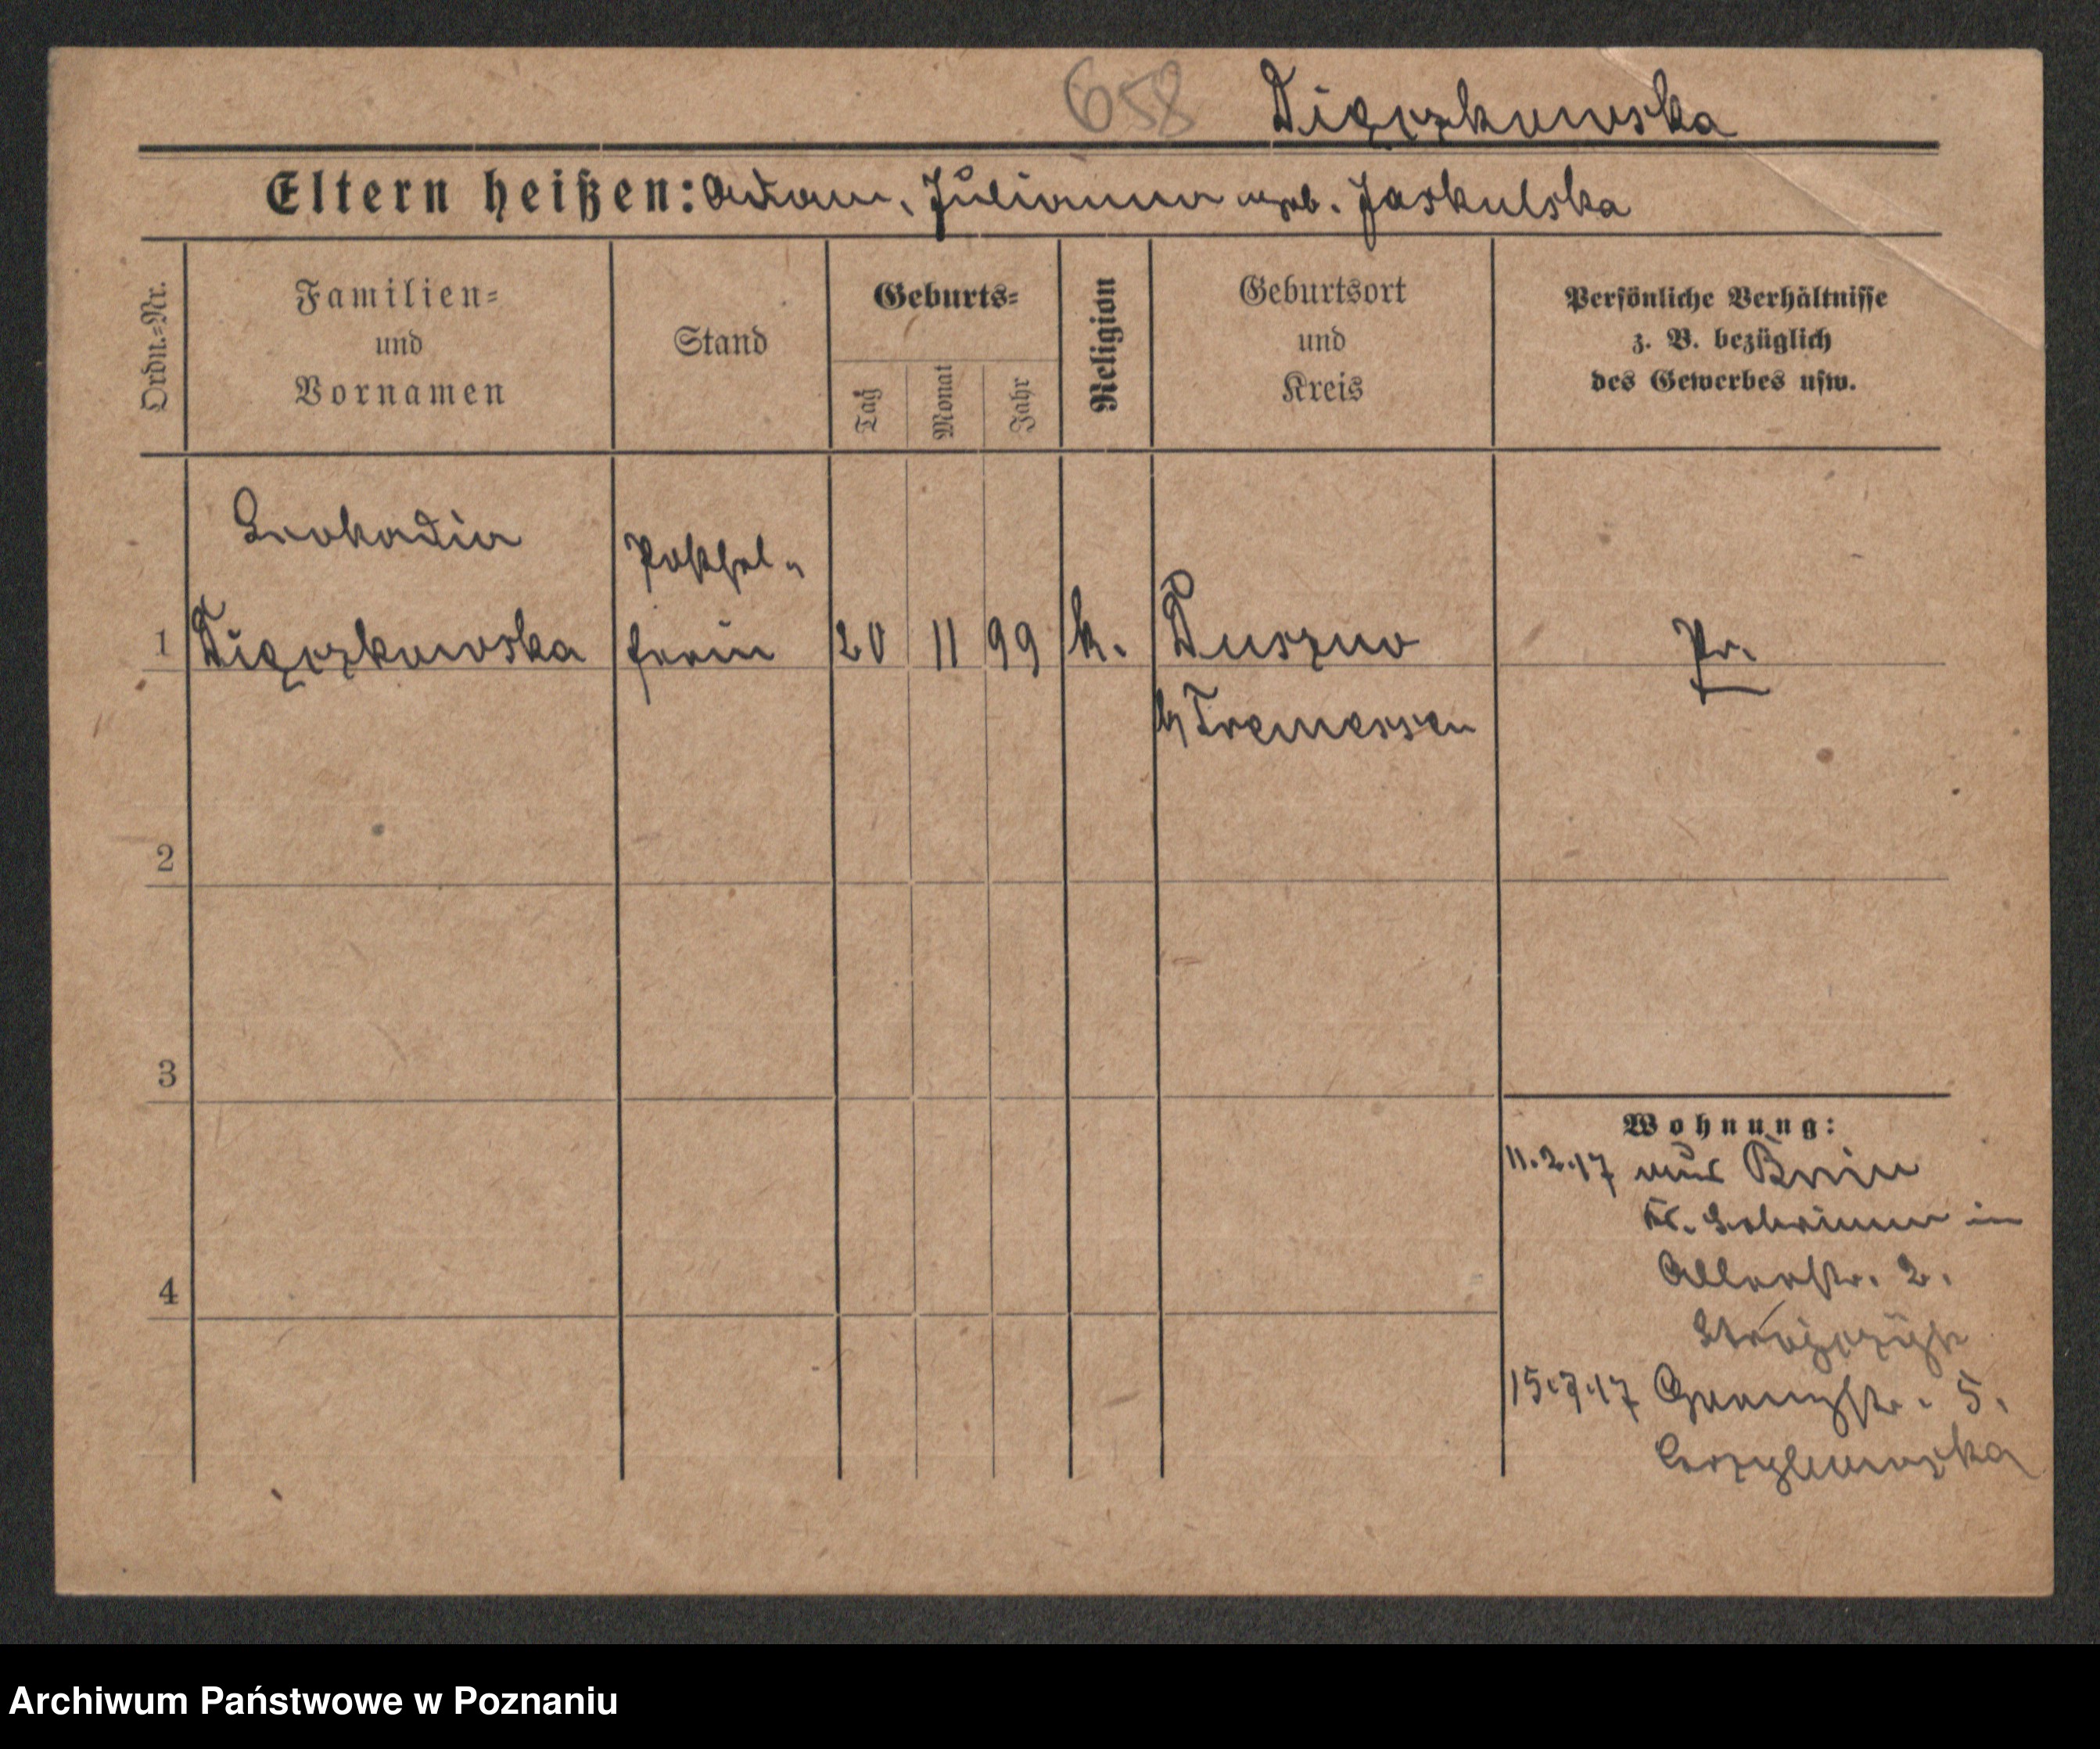 658 Digozkowska
Eltern heißen: Adam, Julianna geb. Jaskulska
Ordn.=Nr.
Familien=
und
Vornamen
Stand
Geburts=
Tag
Monat
Jahr
Religion
Geburtsort
und
Kreis
Persönliche Verhältnisse
z. B. bezüglich
des Gewerbes usw.
Leokadia
Posthel-
1 ferin 20 11 99 k. Duszno Pr.
b/ Tremessen
2
3
Wohnung:
11.2.17 aus Bnin
Kr. Schrimm in
4 Allerstr. 2.
15.7.17 5.
Archiwum Państwowe w Poznaniu